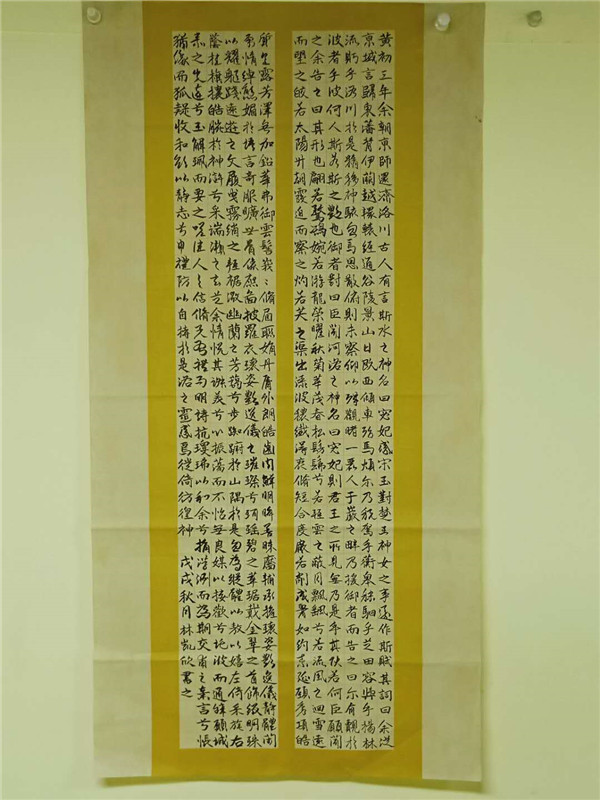 黄初三年余朝京師還濟洛川古人有言斯水之神名曰宓妃感宋玉對楚王神女之事遂作斯賦其詞曰余從
京域言歸東藩背伊闕越轘轅經通谷陵景山日既西傾車殆馬煩尔乃税駕乎蘅皋秣駟乎芝田容與乎楊林
流眄乎洛川於是精移神駭忽焉思散俯則未察仰以殊觀睹一麗人于巖之畔乃援御者而告之曰尔有覿於
彼者乎彼何人斯若斯之艷也御者對曰臣聞河洛之神名曰宓妃則君王之所見無乃是乎其狀若何臣願聞
之余告之曰其形也翩若驚鴻婉若游龍榮曜秋菊華茂春松髣髴兮若輕雲之蔽月飄飖兮若流風之迴雪遠
而望之皎若太陽升朝霞迫而察之灼若芙之渠出渌波穠纖得衷脩短合度肩若削成腰如約素延頸秀項皓
質呈露芳澤無加鉛華弗御雲髻峩〻脩眉聯娟丹脣外朗皓齒内鮮明眸善睞靨輔承權瓌姿艷逸儀静體閑
柔情綽態媚於語言奇服曠世骨像應圖披羅衣瓌姿艷逸儀之璀璨兮珥瑶碧之華琚戴金翠之首飾綴明珠
以耀軀踐遠遊之文履曳霧綃之輕裾微幽蘭之芳藹兮步踟躕於山隅於是忽焉縱體以遨以嬉左倚采旄右
蔭桂旗攘皓腕於神滸兮采湍瀨之玄芝余情悦其淑美兮心振蕩而不怡無良媒以接歡兮託微波而通辭願誠
素之先達兮玉解珮而要之嗟佳人之信脩羌習禮而明詩抗瓊珶以和余兮指潛淵而為期交甫之棄言兮悵
猶像而狐疑收和顔以静志兮申禮防以自持於是洛之靈感焉徙倚彷徨神
戊戌秋月林凱欣書之